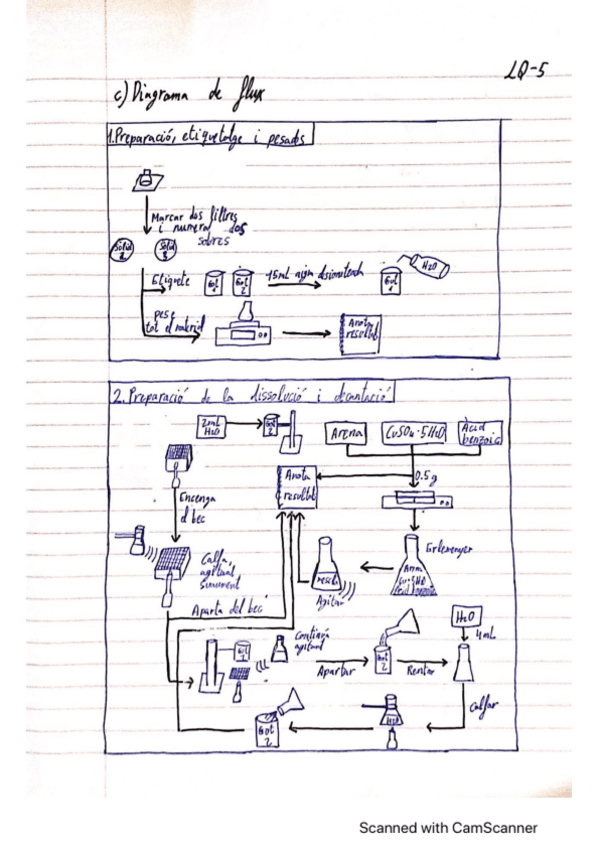 LQ-5
c) Diagrama de flux
1. Preparació, etiquetatge i pesades
Marcar dos filtres
i numerar dos
sobres
Sòlid
1
Sòlid
2
Etiquete
Got
1
Got
2
15mL aigua desionitzada
Got
1
H2O
pese
tot el material
Anota
resultat
2. Preparació de la dissolució i decantació
2mL
H2O
Got
2
Arena
CuSO4·5H2O
Àcid
benzoic
Anota
resultat
0.5g
Encenga
el bec
Erlenmeyer
Calfa,
agitant
suaument
Arena
resulta
Agitar
Aparta del bec
Continua
agitant
Got
2
Apartar
Got
2
Rentar
H2O
4mL
Calfar
H2O
Got
2
Scanned with CamScanner